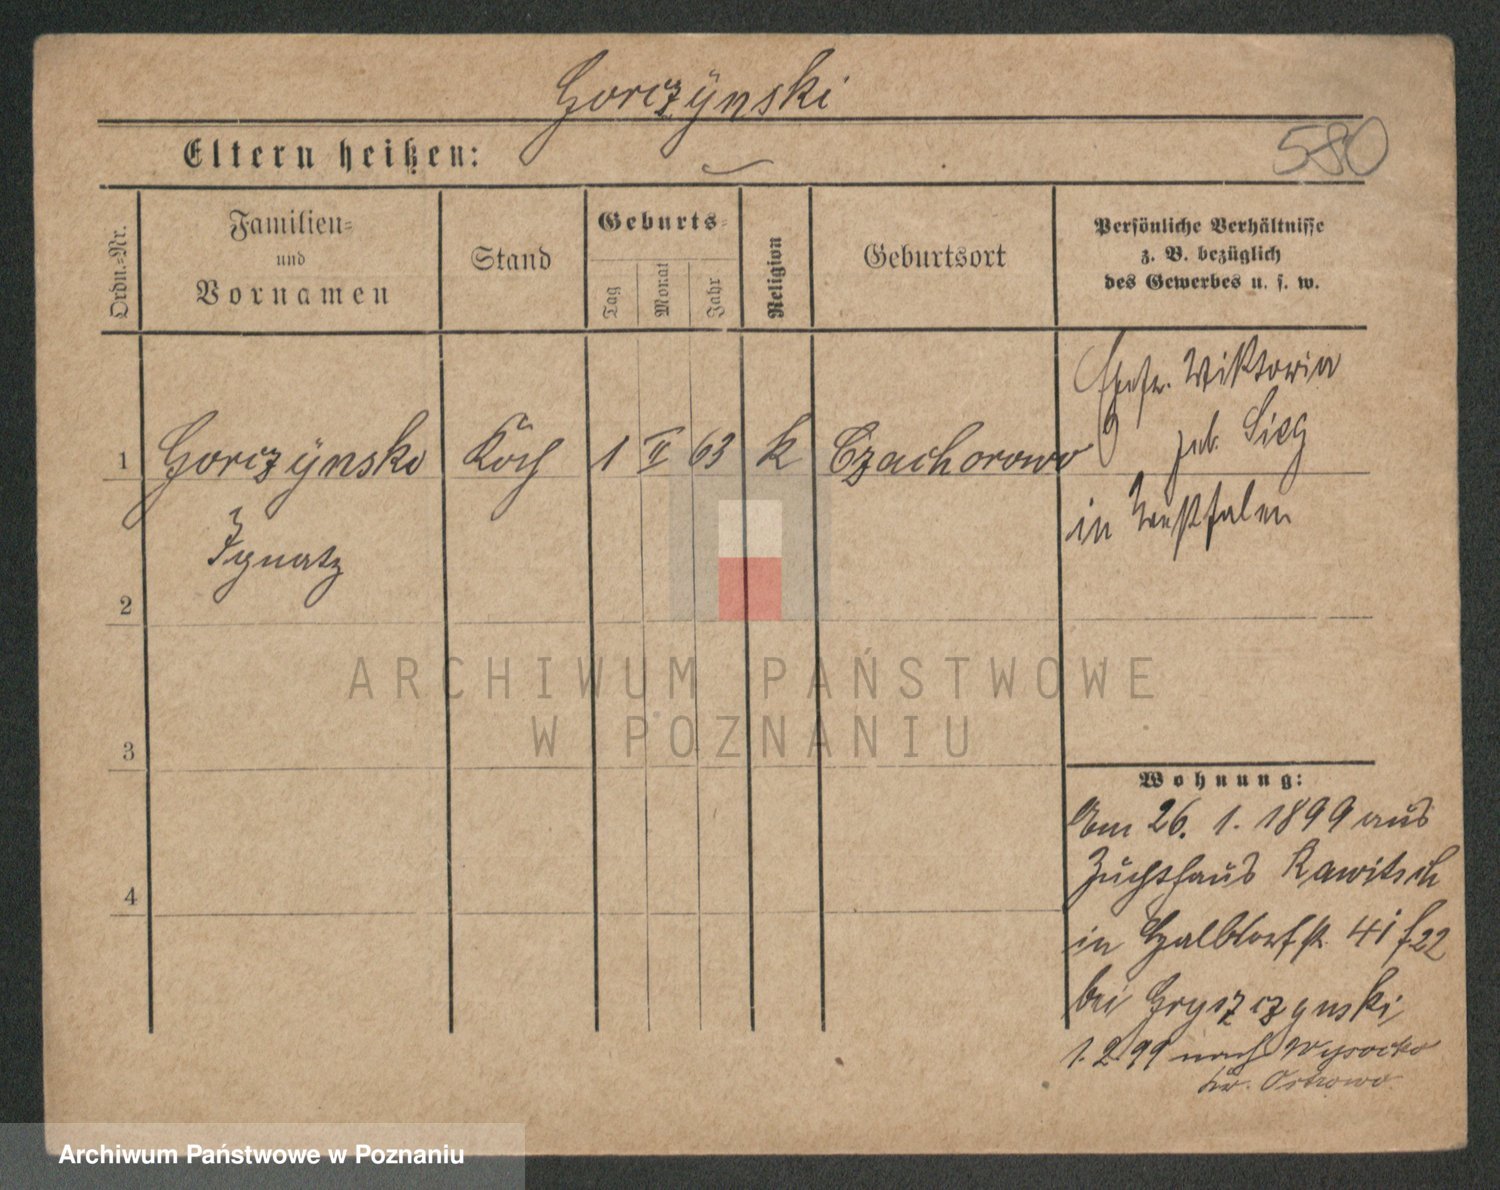 Gorczÿnski
Eltern heißen:
580
Ordn.-Nr.
Familien-
und
Vornamen
Stand
Geburts-
Tag
Monat
Jahr
Religion
Geburtsort
Persönliche Verhältnisse
z. B. bezüglich
des Gewerbes u. s. w.
1 Gorczÿnski Koch 1 II 63 k Czachorowo
Ignatz
Ehefr. Wiktoria
geb. Sieg
in Westfalen
2
3
4
ARCHIWUM PAŃSTWOWE
W POZNANIU
Wohnung:
Am 26. 1. 1899 aus
Zuchthaus Rawitsch
in Halbdorfstr. 41
bei
1.2.99 nach Wysocko
Kr. Ostrowo
Archiwum Państwowe w Poznaniu